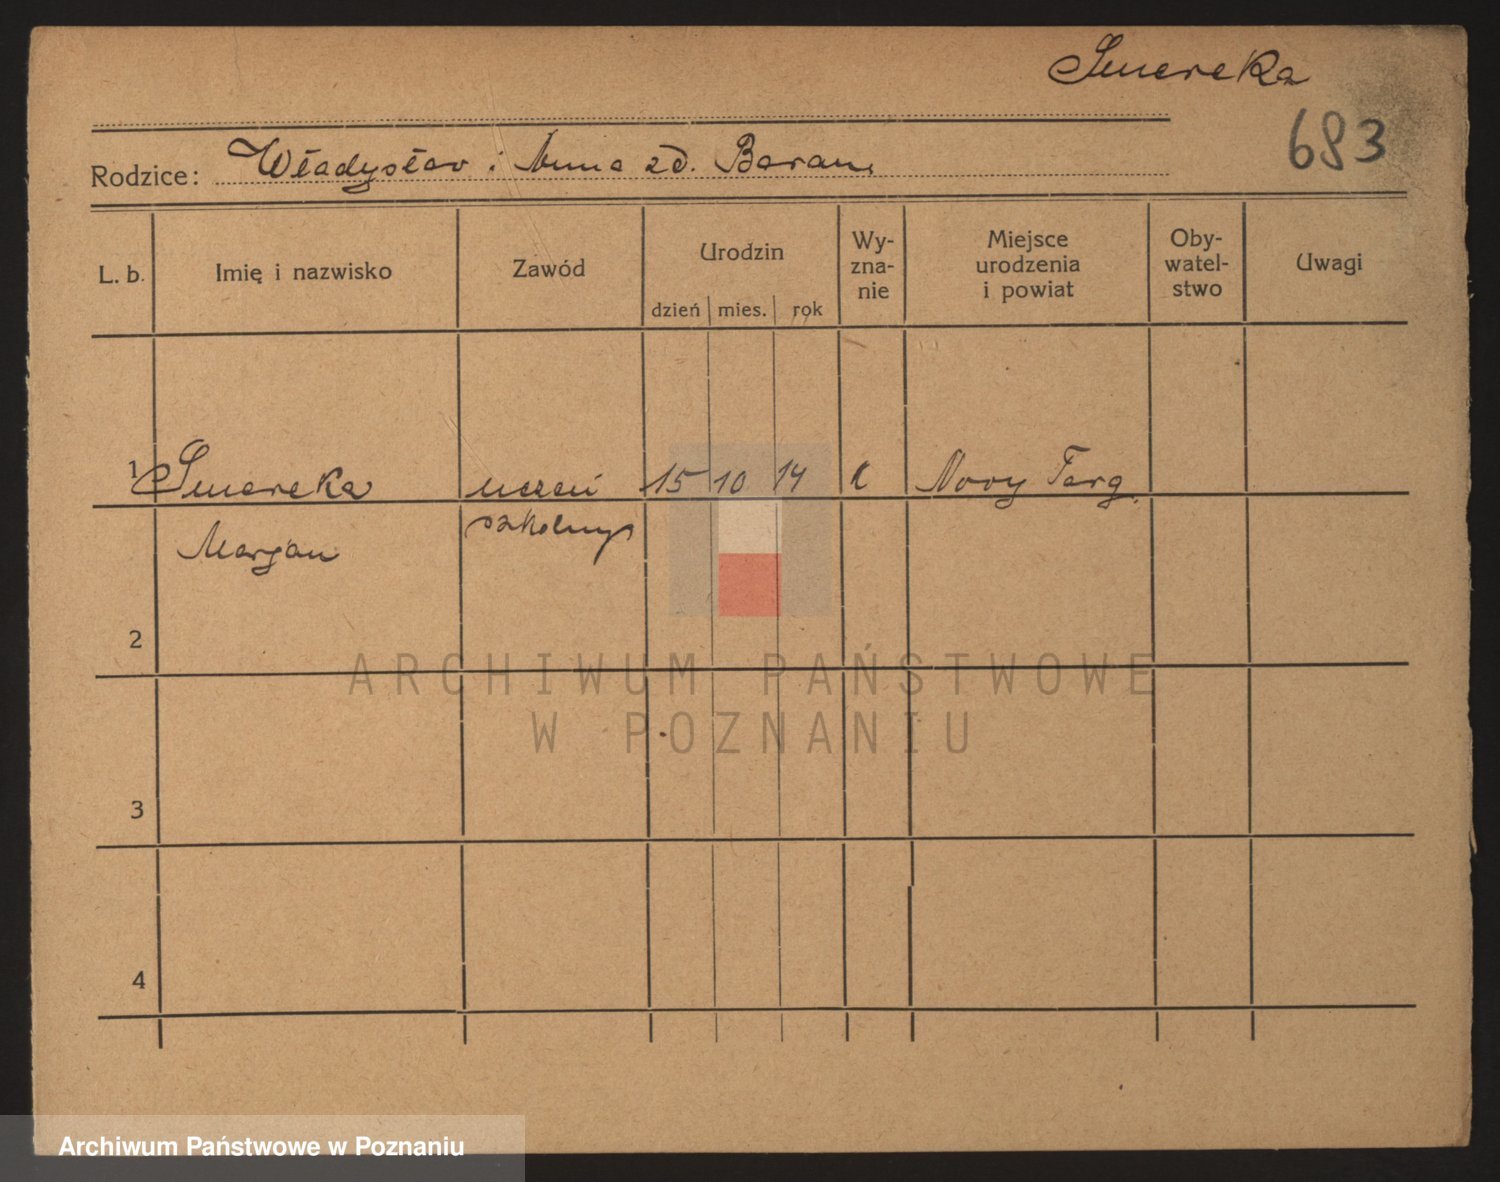 Smereka
683
Rodzice: Władysław i Anna zd. Baran
L. b. Imię i nazwisko Zawód Urodzin dzień mies. rok Wy-zna-nie Miejsce urodzenia i powiat Oby-watel-stwo Uwagi
1 Smereka uczeń 15 10 14 k Nowy Targ
Marjan szkolny
2
ARCHIWUM PAŃSTWOWE
W POZNANIU
3
4
Archiwum Państwowe w Poznaniu